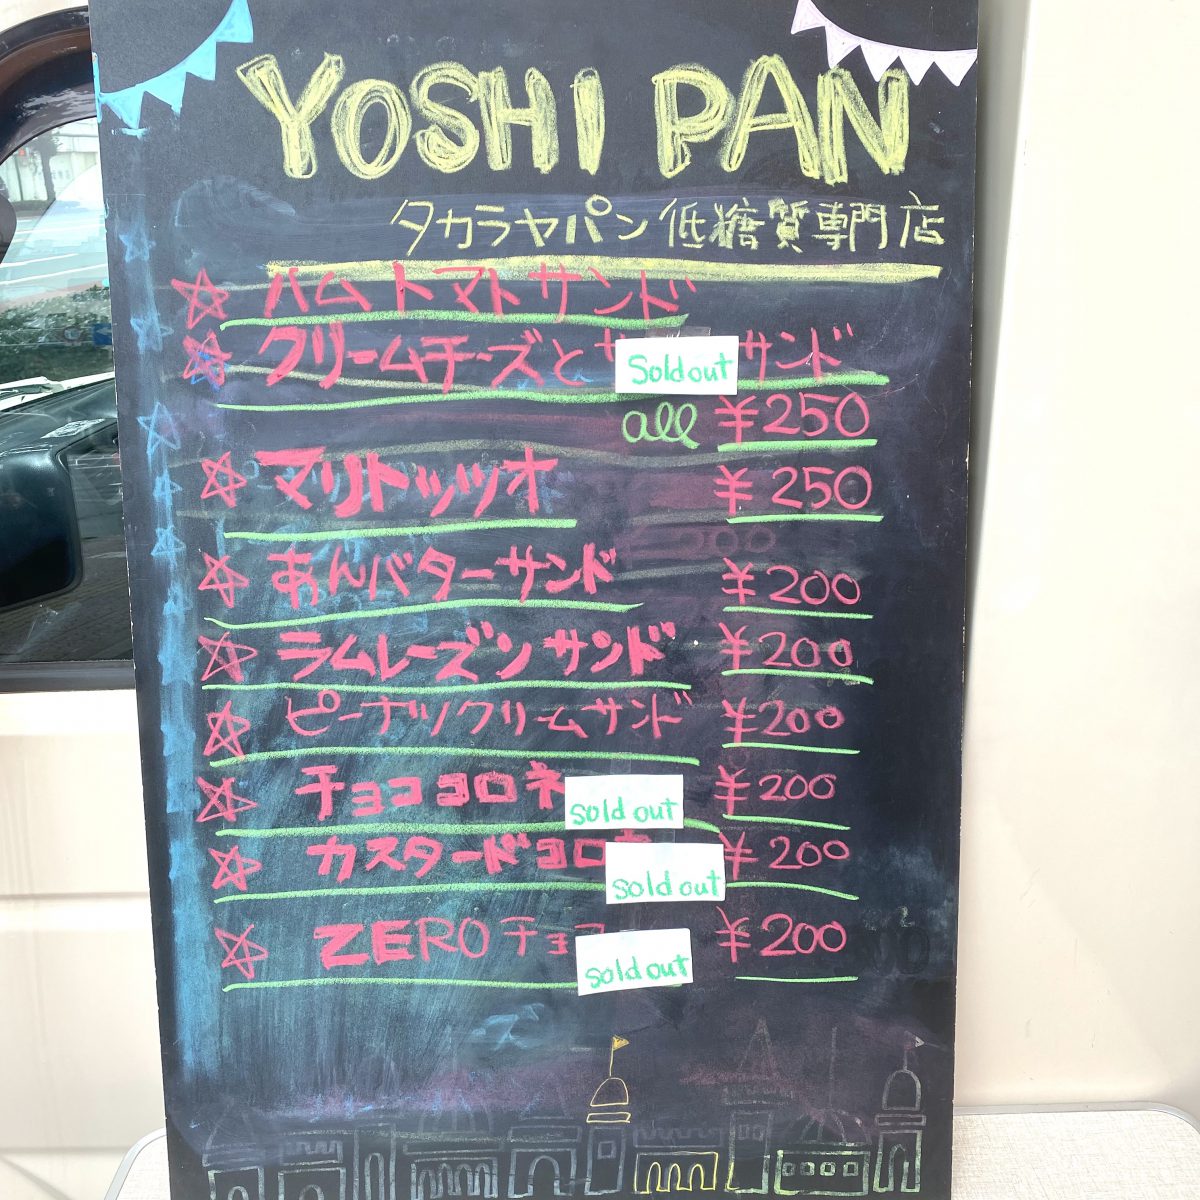 YOSHI PAN
タカラヤパン低糖質専門店
ハムトマトサンド
クリームチーズとサ Sold out サンド
all ¥250
マリトッツオ ¥250
あんバターサンド ¥200
ラムレーズンサンド ¥200
ピーナツクリームサンド ¥200
チョココロネ sold out ¥200
カスタードコロネ sold out ¥200
ZEROチョコ sold out ¥200